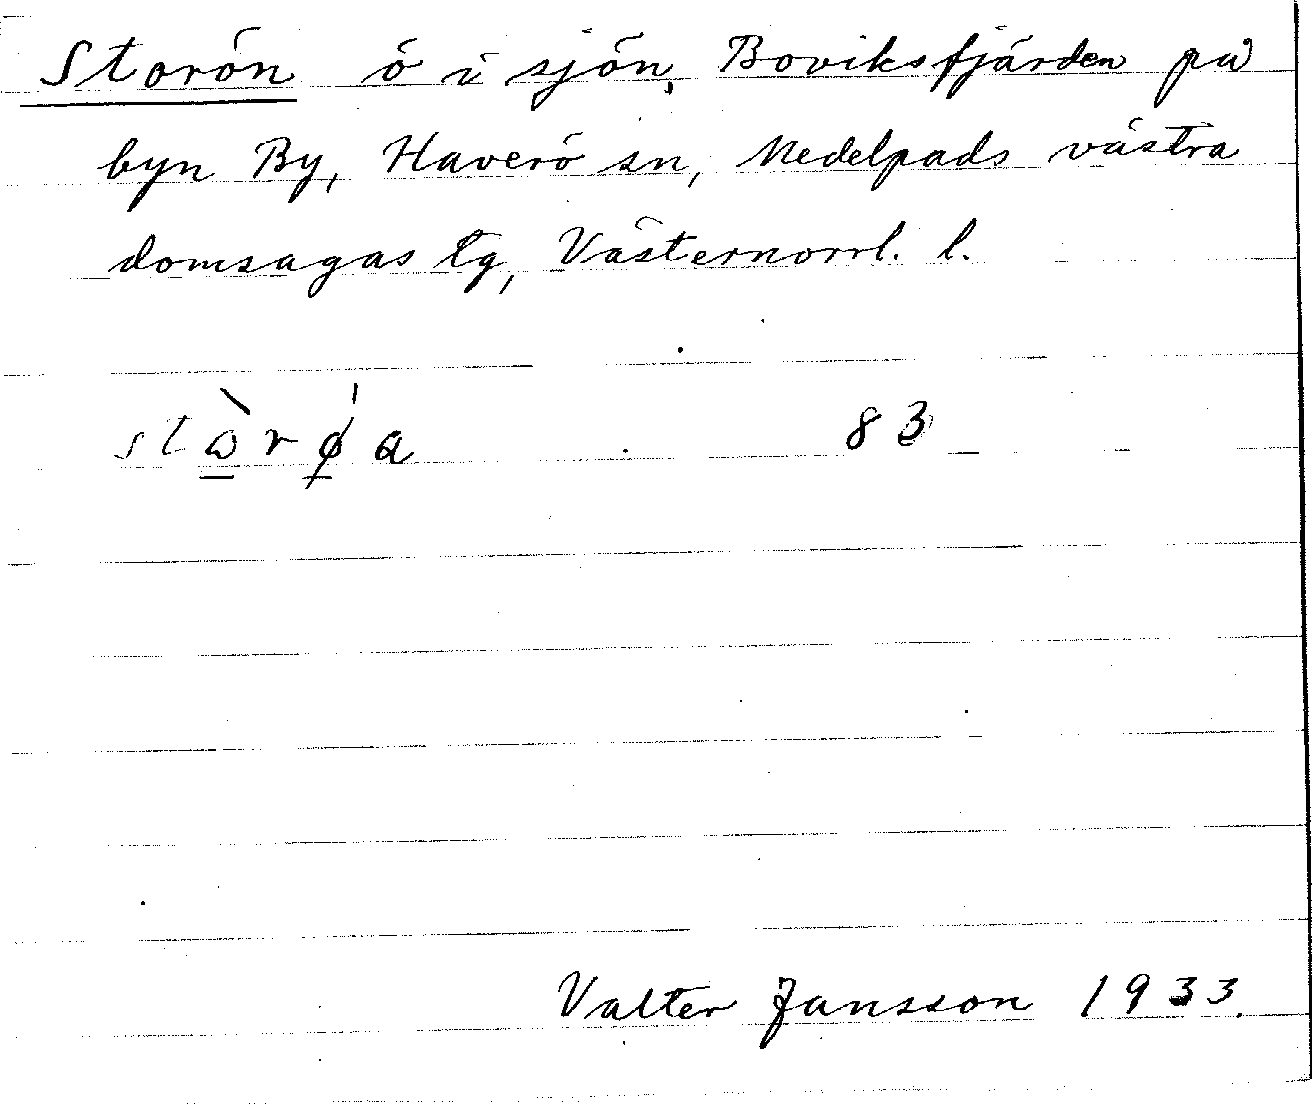 Storön ö i sjön, Boviksfjärden på
byn By, Haverö sn, Medelpads västra
domsagas tg, Västernorrl. l.
stὼ̱rǿ̱a 83
Valter Jansson 1933.